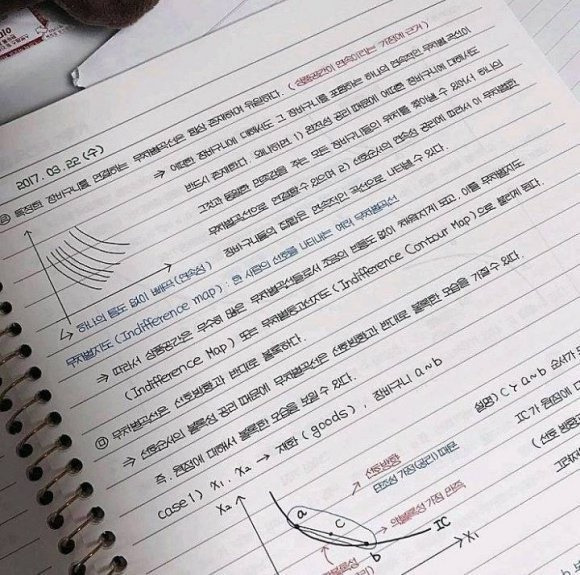 2017. 03. 22 (수)
㉢ 특정한 장바구니를 연결하는 무차별곡선은 항상 존재하며 유일하다. (상품공간이 연속이라는 가정에 근거)
→ 어떠한 장바구니에 대해서도 그 장바구니를 포함하는 하나의 연속적인 무차별 곡선이
반드시 존재한다. 왜냐하면, 1) 완전성 공리 때문에 어떠한 장바구니에 대해서도
그것과 동일한 만족감을 주는 모든 장바구니들의 위치를 찾아낼 수 있어서 하나의
무차별곡선으로 연결할 수 있으며 2) 선호순서의 연속성 공리에 따라서 이 무차별한
장바구니들의 집합은 연속적인 곡선으로 나타낼 수 있다.
↳ 하나의 틈도 없이 빽빽(연속성)
무차별지도 (Indifference map) : 한 사람의 선호를 나타내는 여러 무차별곡선
→ 따라서 상품공간은 무수히 많은 무차별곡선들로서 조금의 빈틈도 없이 채워지게 되고, 이를 무차별지도
(Indifference Map) 또는 무차별등고선지도 (Indifference Contour Map)으로 불리게 된다.
㉣ 무차별곡선은 선호방향과 반대로 볼록하다.
→ 선호순서의 볼록성 공리 때문에 무차별곡선은 선호방향과 반대로 볼록한 모습을 가질 수 있다.
즉, 원점에 대해서 볼록한 모습을 보일 수 있다.
case 1) X₁, X₂ → 재화 (goods), 장바구니 a~b
설명) C > a~b 순서가
IC가 원점에
(선호 방향
X₂
선호방향
단조성 가정(공리) 때문
a
c
b
IC
X₁
약볼록성 가정 만족
볼록성